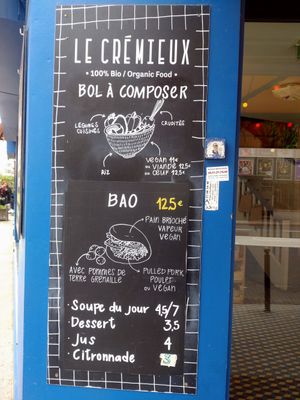 LE CRÉMIEUX
• 100% Bio / Organic Food •
BOL À COMPOSER
LÉGUMES CUISINÉS
CRUDITÉS
RIZ
VEGAN 11€
OU VIANDE 12,5€
OU ŒUF 12,5€
BAO 12,5€
PAIN BRIOCHÉ
VAPEUR
VEGAN
AVEC POMMES DE
TERRE GRENAILLE
PULLED PORK
POULET
OU VEGAN
• Soupe du jour 4,5/7
• Dessert 3,5
• Jus 4
• Citronnade